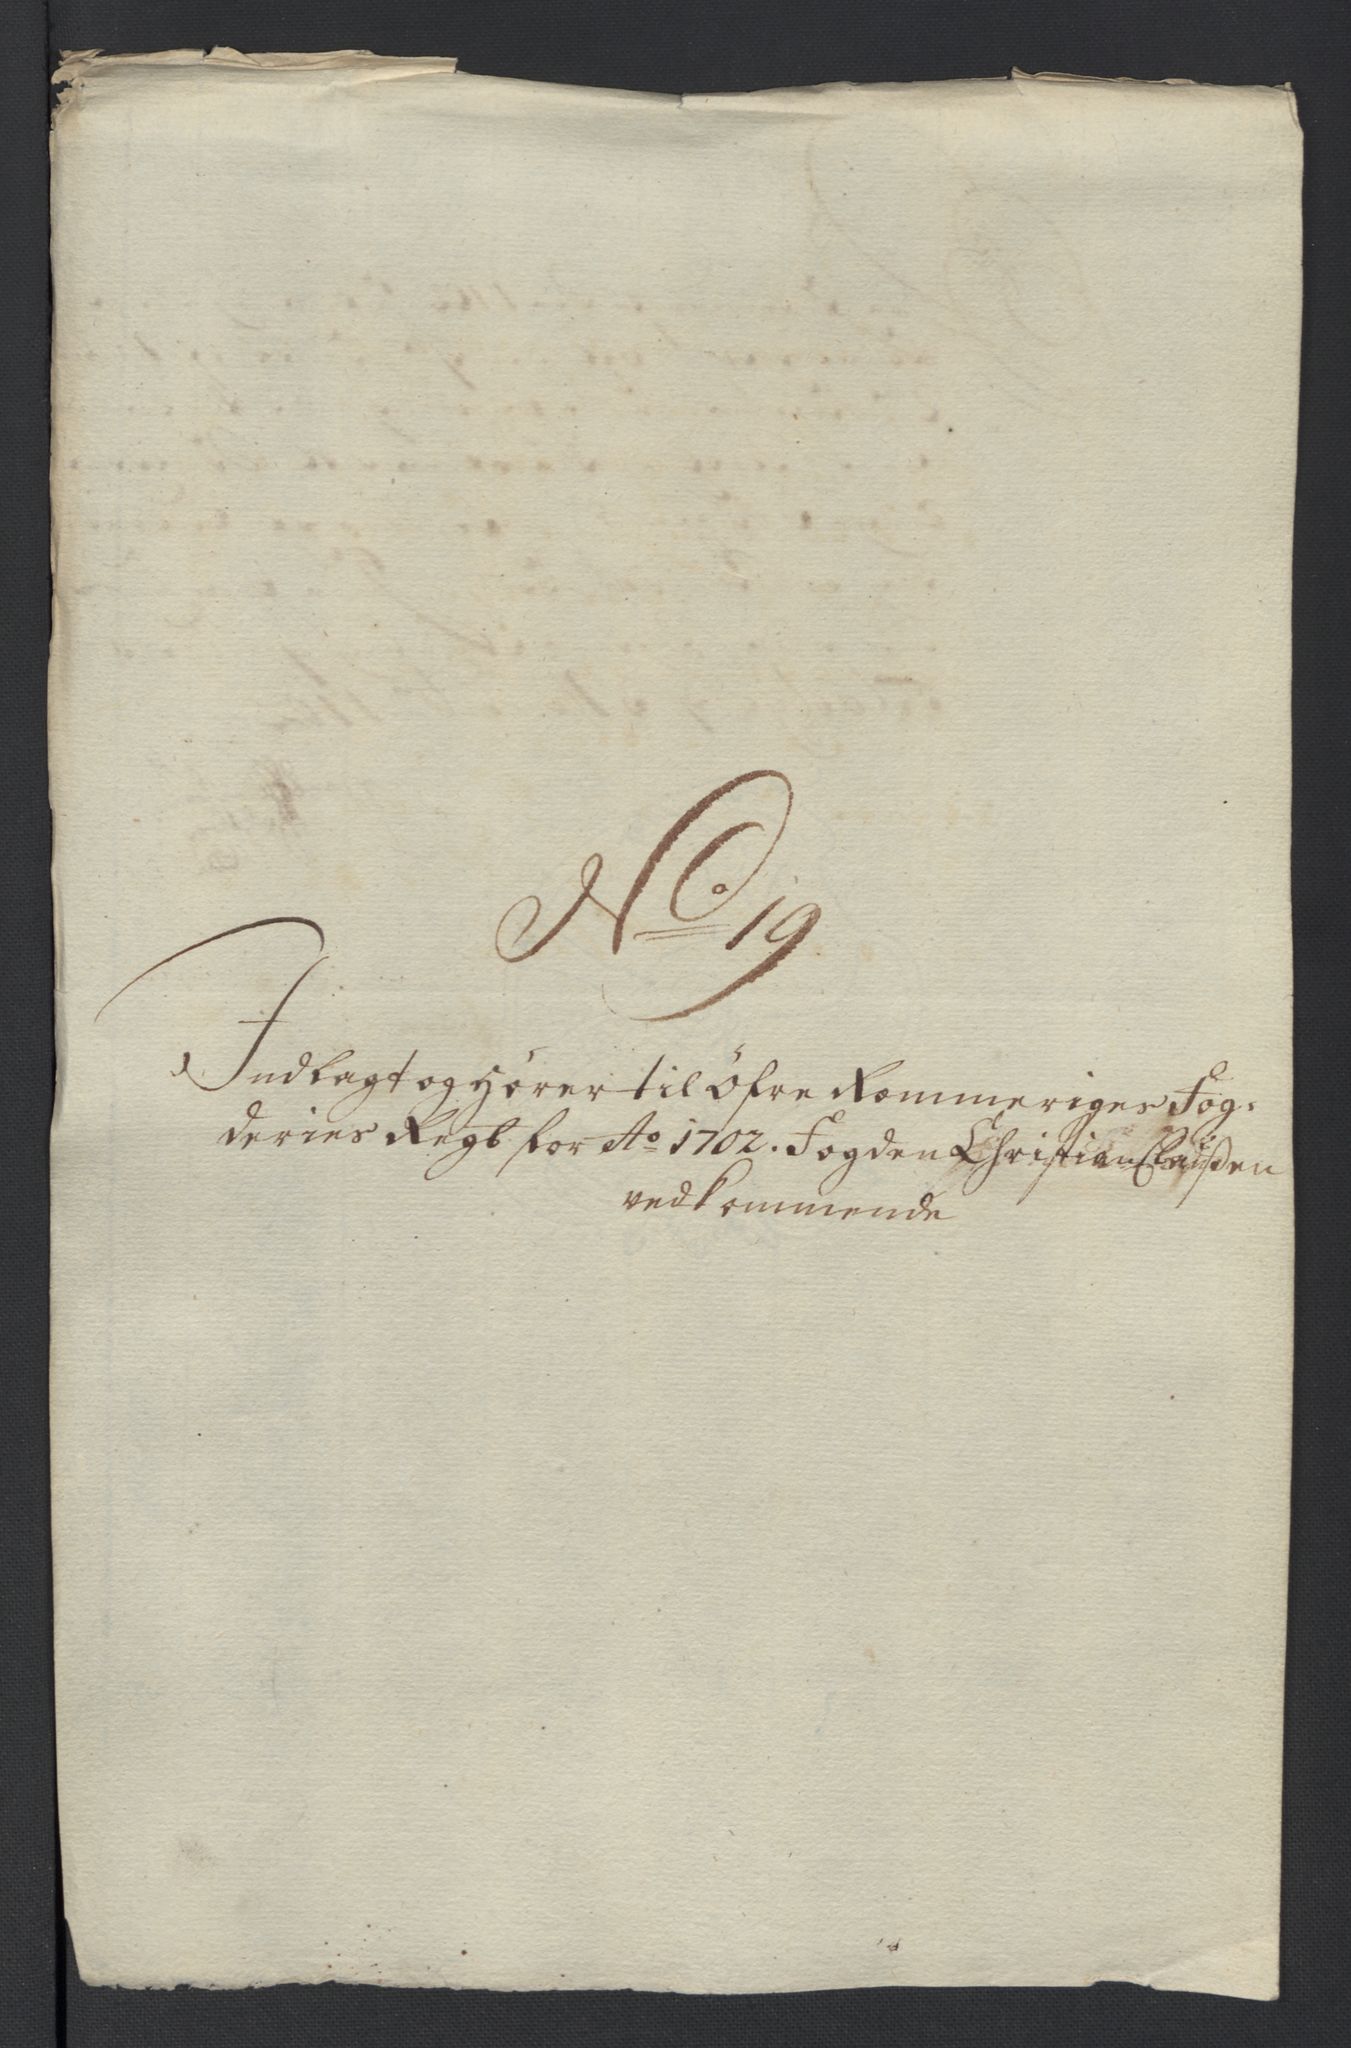 No 19
Indlagt og Hörer til Öfre Rommeriges Fog-
deries Regb for Ao 1702. Fogden Christian Clausßen
vedkommende